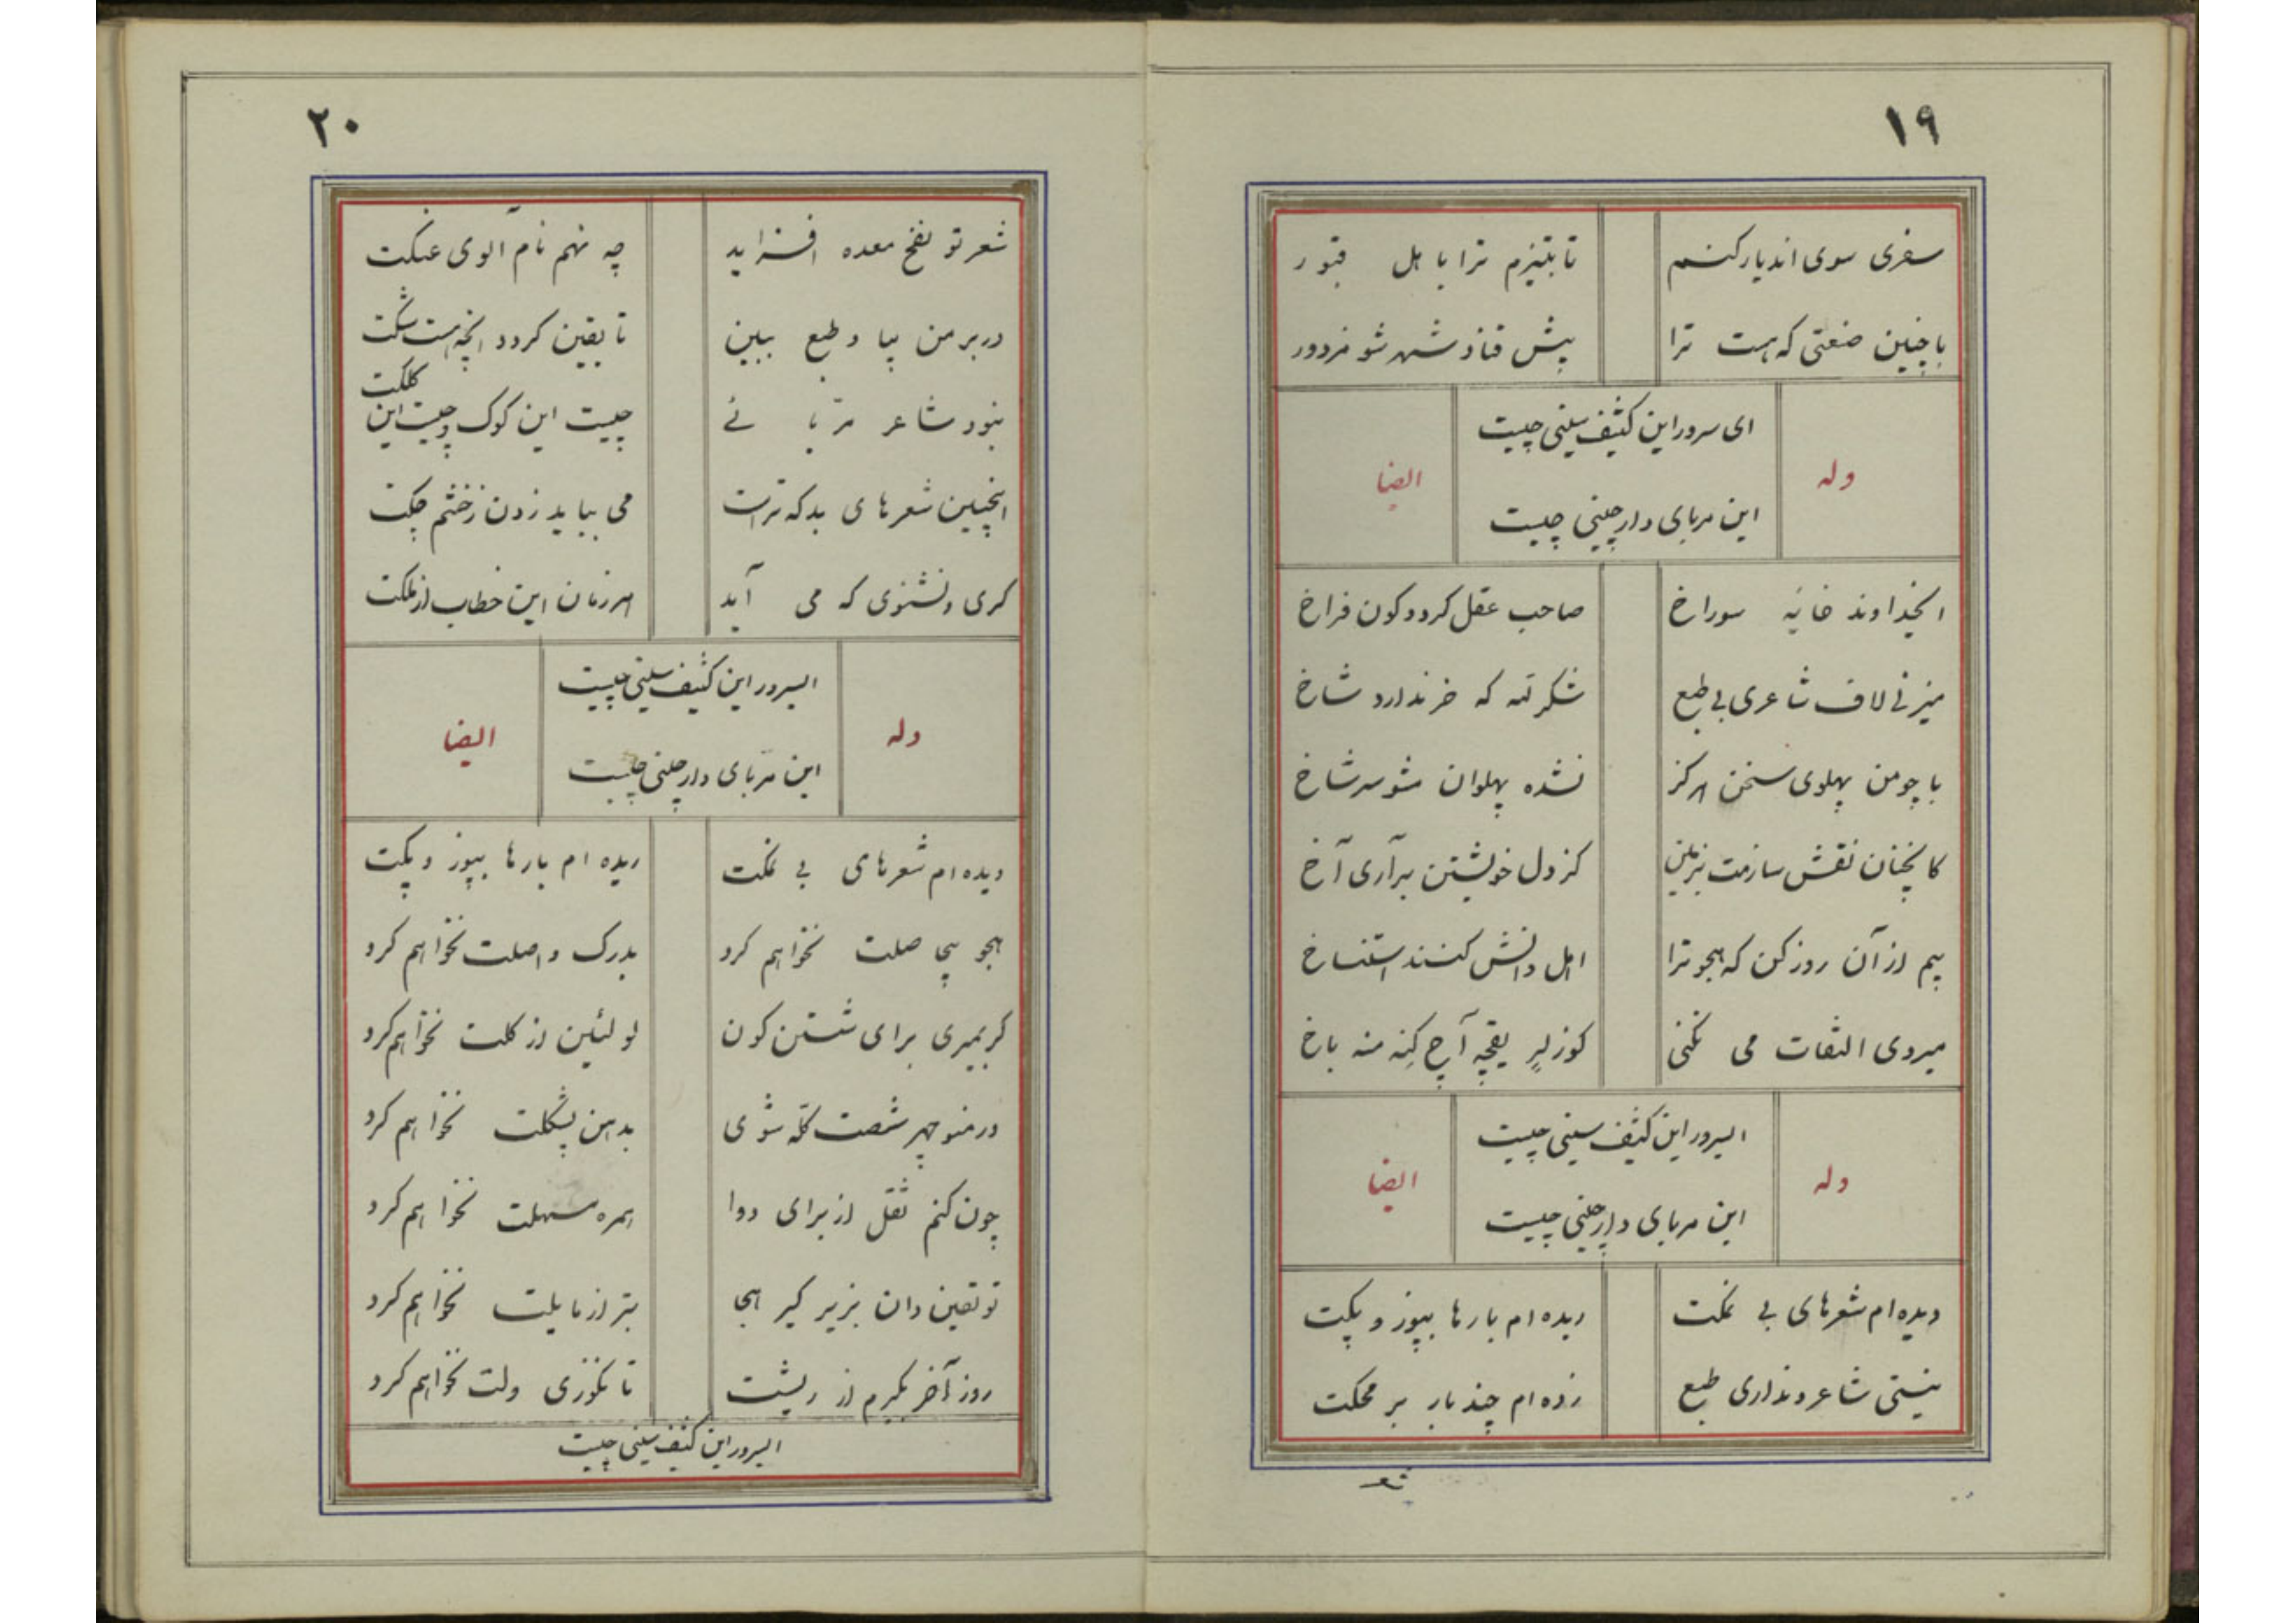 ١٩
سفری سوی اندیار کنم تا بتیزم ترا با هل قبور
با چنین صنعتی که هست ترا پیش قناد شهر شو مزدور
وله
ای سرور این کثیف سینی چیست
این مربای دارچینی چیست
ایضا
ایخداوند خانیه سوراخ صاحب عقل کرد و کون فراخ
میزنی لاف شاعری بی طبع شکر لله که خر ندارد شاخ
با چو من پهلوی سخن هرکز نشده پهلوان مشو سرشاخ
کانچنان نقش سازمت بزمین کز دل خویشتن برآری آخ
بیم از آن روز کن که هجو ترا اهل دانش کنند استنساخ
میروی التفات می نکنی کوزلر یقچه آچ کنه منه باخ
وله
ایسرور این کثیف سینی چیست
این مربای دارچینی چیست
ایضا
دیده ام شعرهای بی نمکت ریده ام بارها بپوز و پکت
نیستی شاعر و نداری طبع زده ام چند بار بر محکت
شعر
٢٠
شعر تو نفخ معده افزاید چه نهم نام آلوی عنکت
در بر من بیا و طبع ببین تا یقین کردد انچه هست شکت
نبود شاعر مربا ئے چیست این کوک و چیست این کلکت
اینچنین شعرهای بد که تراست می بباید زدن ز خشم چکت
کری و نشنوی که می آید هر زمان این خطاب از ملکت
وله
ایسرور این کثیف سینی چیست
این مربّای دارچینی چیست
ایضا
دیده ام شعرهای بی نمکت ریده ام بارها بپوز و پکت
هجو بیجا صلت نخواهم کرد بدرک واصلت نخواهم کرد
کر بمیری برای شستن کون لولئین از کلت نخواهم کرد
ور منوچهر شصت کله شوی بدهن پشکلت نخواهم کرد
چون کنم نقل از برای دوا همره مسهلت نخواهم کرد
تو یقین دان بزیر کیر هجا بتر از مایلت نخواهم کرد
روز آخر بکیرم از ریشت تا نکوزی ولت نخواهم کرد
ایسرور این کثیف سینی چیست